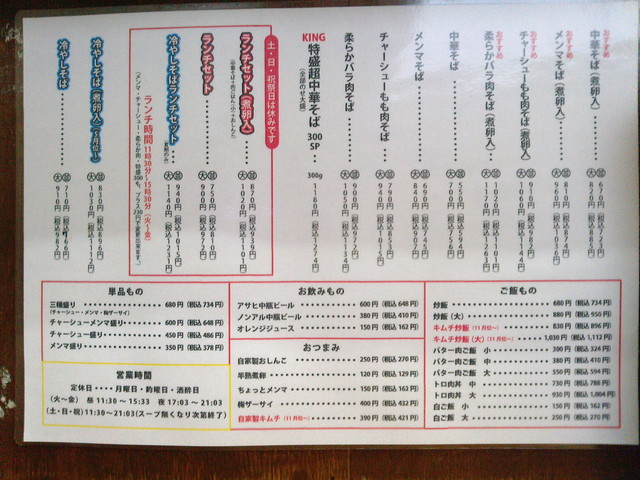 おすすめ
中華そば(煮卵入)
おすすめ
メンマそば(煮卵入)
おすすめ
チャーシューもも肉そば(煮卵入)
おすすめ
柔らかバラ肉そば(煮卵入)
中華そば
普 550円(税込594円)
大 700円
メンマそば
普 690円(税込745円)
チャーシューもも肉そば
普 790円
大 940円(税込1015円)
柔らかバラ肉そば
大 1050円(税込1134円)
KING 特盛超中華そば 300SP
(全部のせ大盛)
300g 1180円(税込1274円)
土・日・祝祭日は休みです
ランチセット(煮卵入)
大 1020円
ランチセット
普 750円
大 900円(税込972円)
冷やしそばランチセット
普 940円(税込1015円)
大 1140円(税込1231円)
ランチ時間 11時30分〜15時30分(火〜金)
冷やしそば(煮卵入)
普 830円(税込896円)
大 1030円(税込1112円)
冷やしそば
普 710円(税込766円)
大 910円(税込982円)
単品もの
三種盛り 680円(税込734円)
(チャーシュー・メンマ・梅ザーサイ)
チャーシューメンマ盛り 600円(税込648円)
チャーシュー盛り 450円(税込486円)
メンマ盛り 350円(税込378円)
営業時間
定休日・・・・月曜日・昤曜日・酒酔日
(火〜金) 昼11:30〜15:33 夜17:03〜21:03
(土・日・祝)11:30〜21:03(スープ無くなり次第終了)
お飲みもの
アサヒ中瓶ビール 600円(税込648円)
ノンアル中瓶ビール 380円(税込410円)
オレンジジュース 150円(税込162円)
おつまみ
自家製おしんこ 250円(税込270円)
半熟煮卵 120円(税込129円)
ちょっとメンマ 150円(税込162円)
梅ザーサイ 400円(税込432円)
自家製キムチ(11月位〜) 390円(税込421円)
ご飯もの
炒飯 680円(税込734円)
炒飯(大) 880円(税込950円)
キムチ炒飯(11月位〜) 830円(税込896円)
キムチ炒飯(大)(11月位〜) 1,030円(税込1,112円)
バター肉ご飯 小 300円(税込324円)
バター肉ご飯 中 380円(税込410円)
バター肉ご飯 大 550円(税込594円)
トロ肉丼 中 730円(税込788円)
トロ肉丼 大 930円(税込1,004円)
白ご飯 小 150円(税込162円)
白ご飯 大 250円(税込270円)